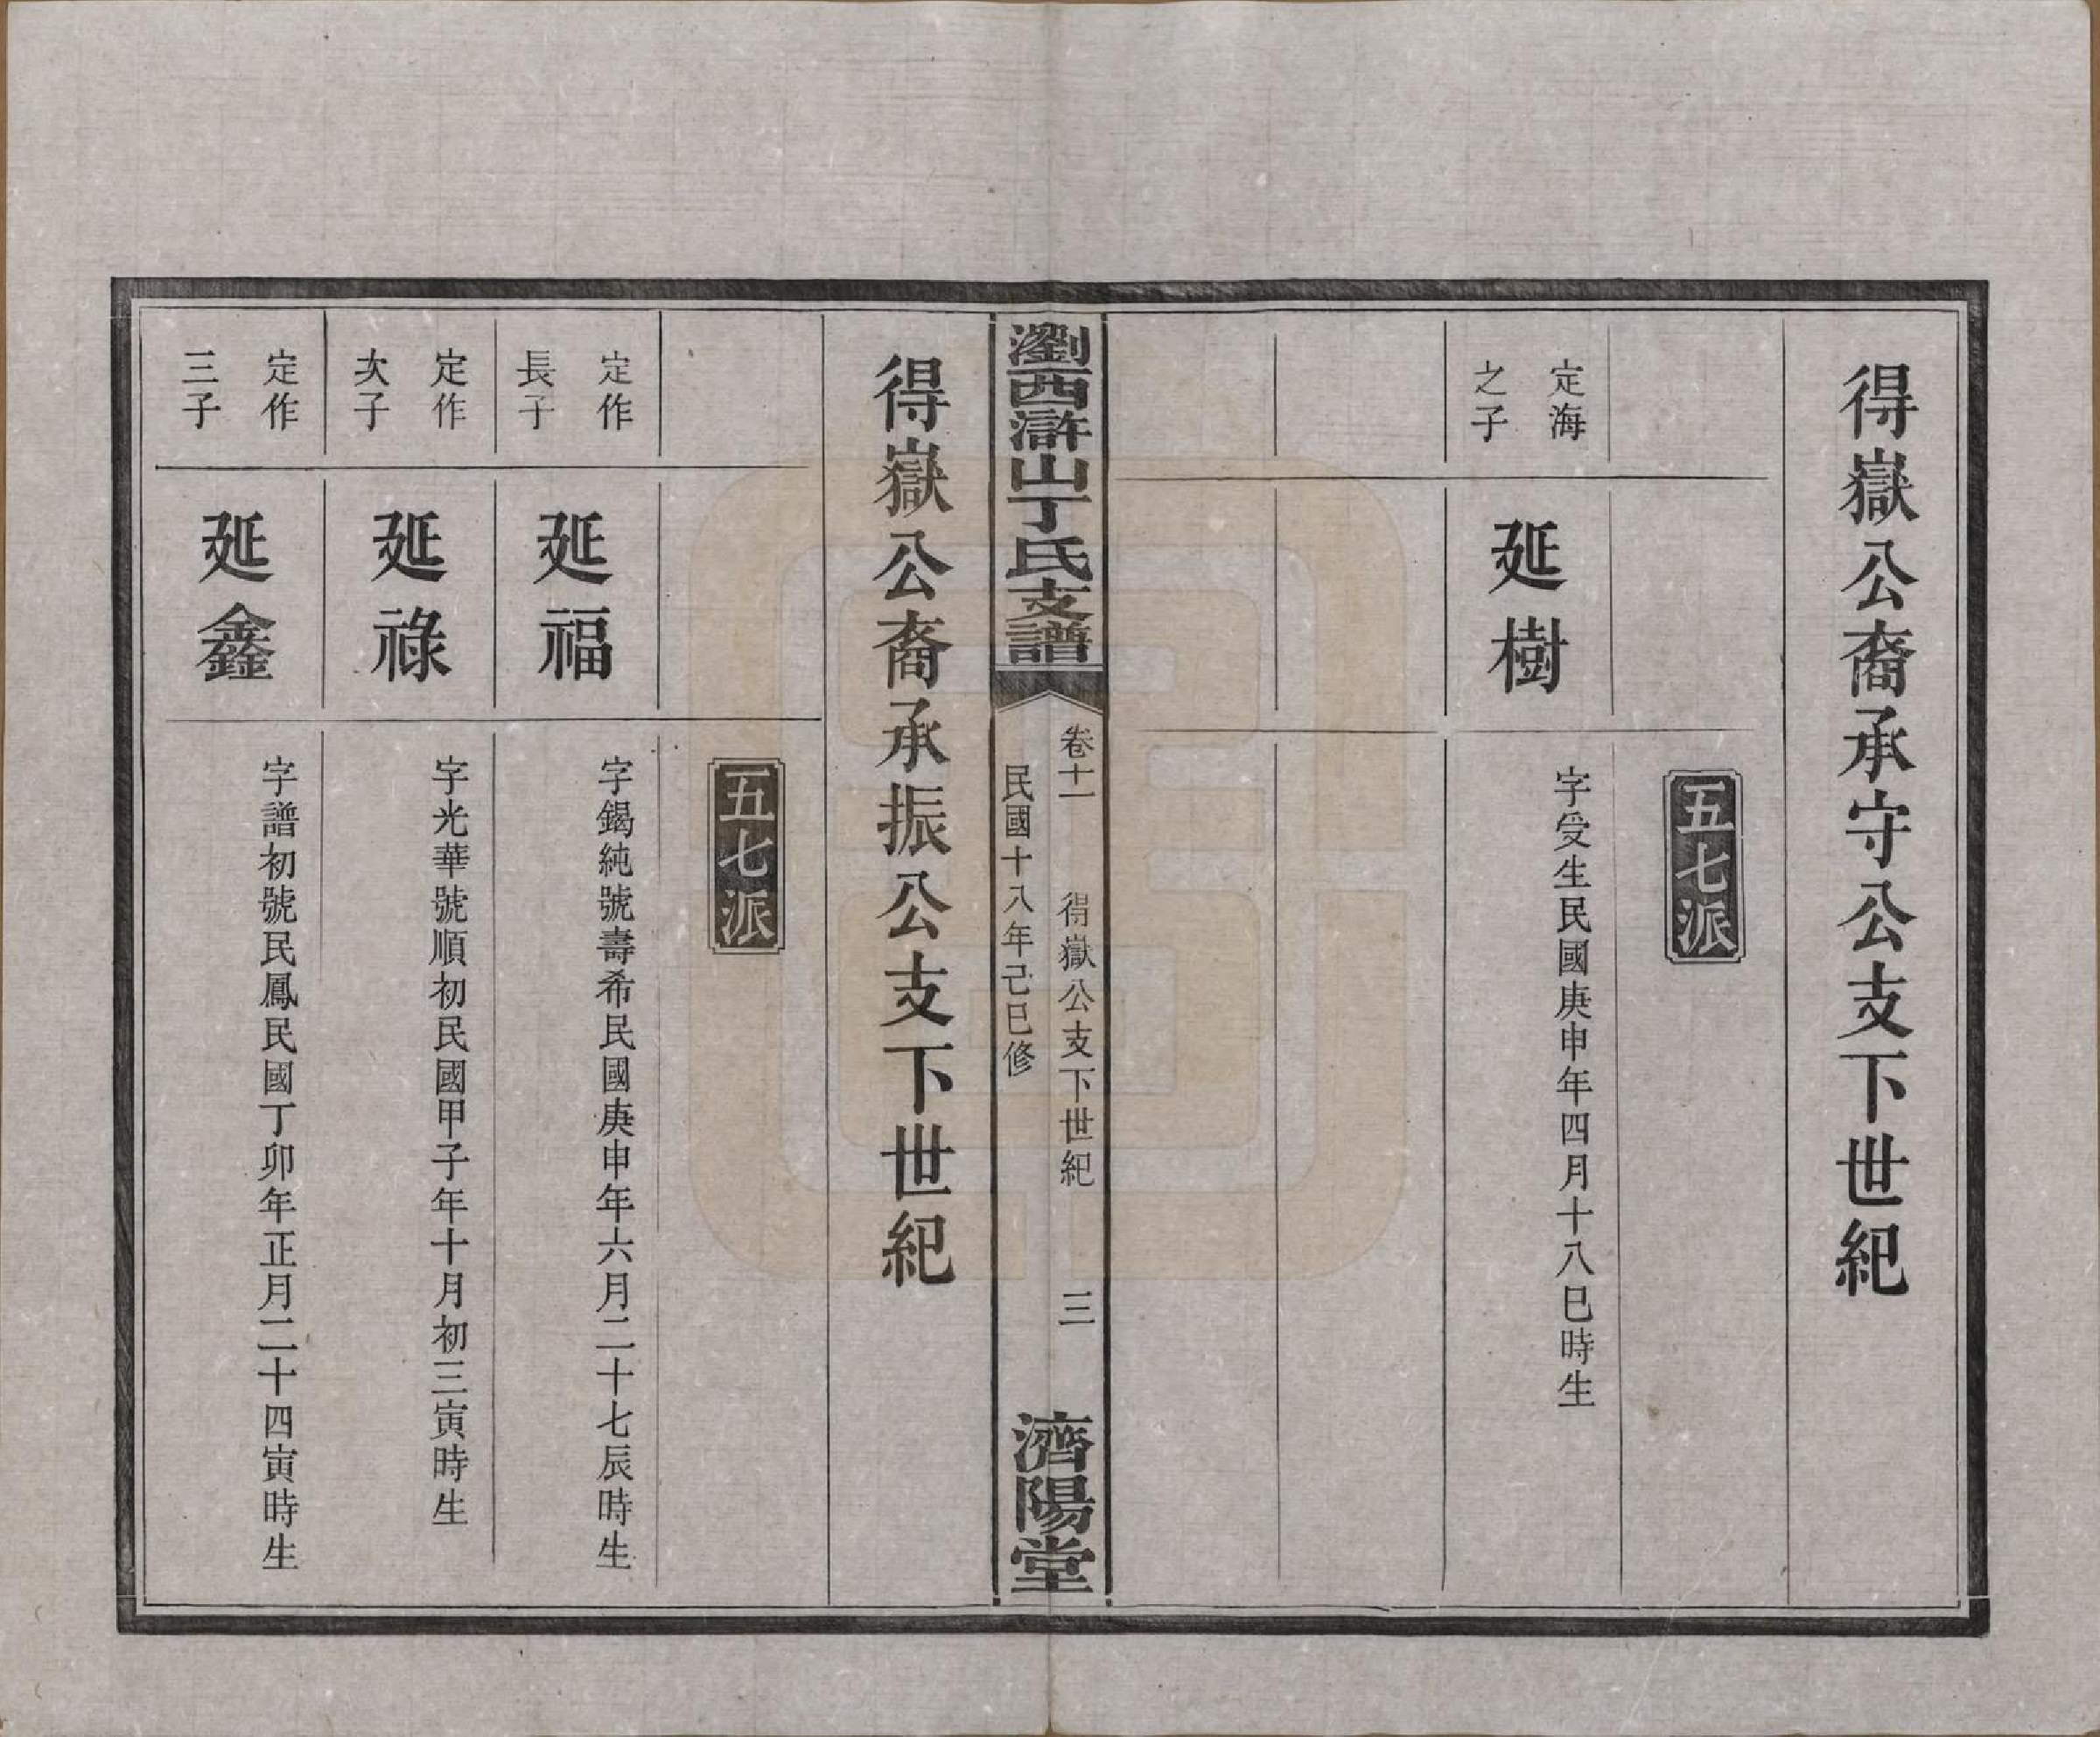 得嶽公裔承守公支下世紀
五七派
定海
之子
延樹
字受生民國庚申年四月十八巳時生
瀏西滸山丁氏支譜
卷十一
得嶽公支下世紀
三
民國十八年己巳修
濟陽堂
得嶽公裔承振公支下世紀
五七派
定作
長子
延福
字錫純號壽希民國庚申年六月二十七辰時生
定作
次子
延祿
字光華號順初民國甲子年十月初三寅時生
定作
三子
延鑫
字譜初號民鳳民國丁卯年正月二十四寅時生